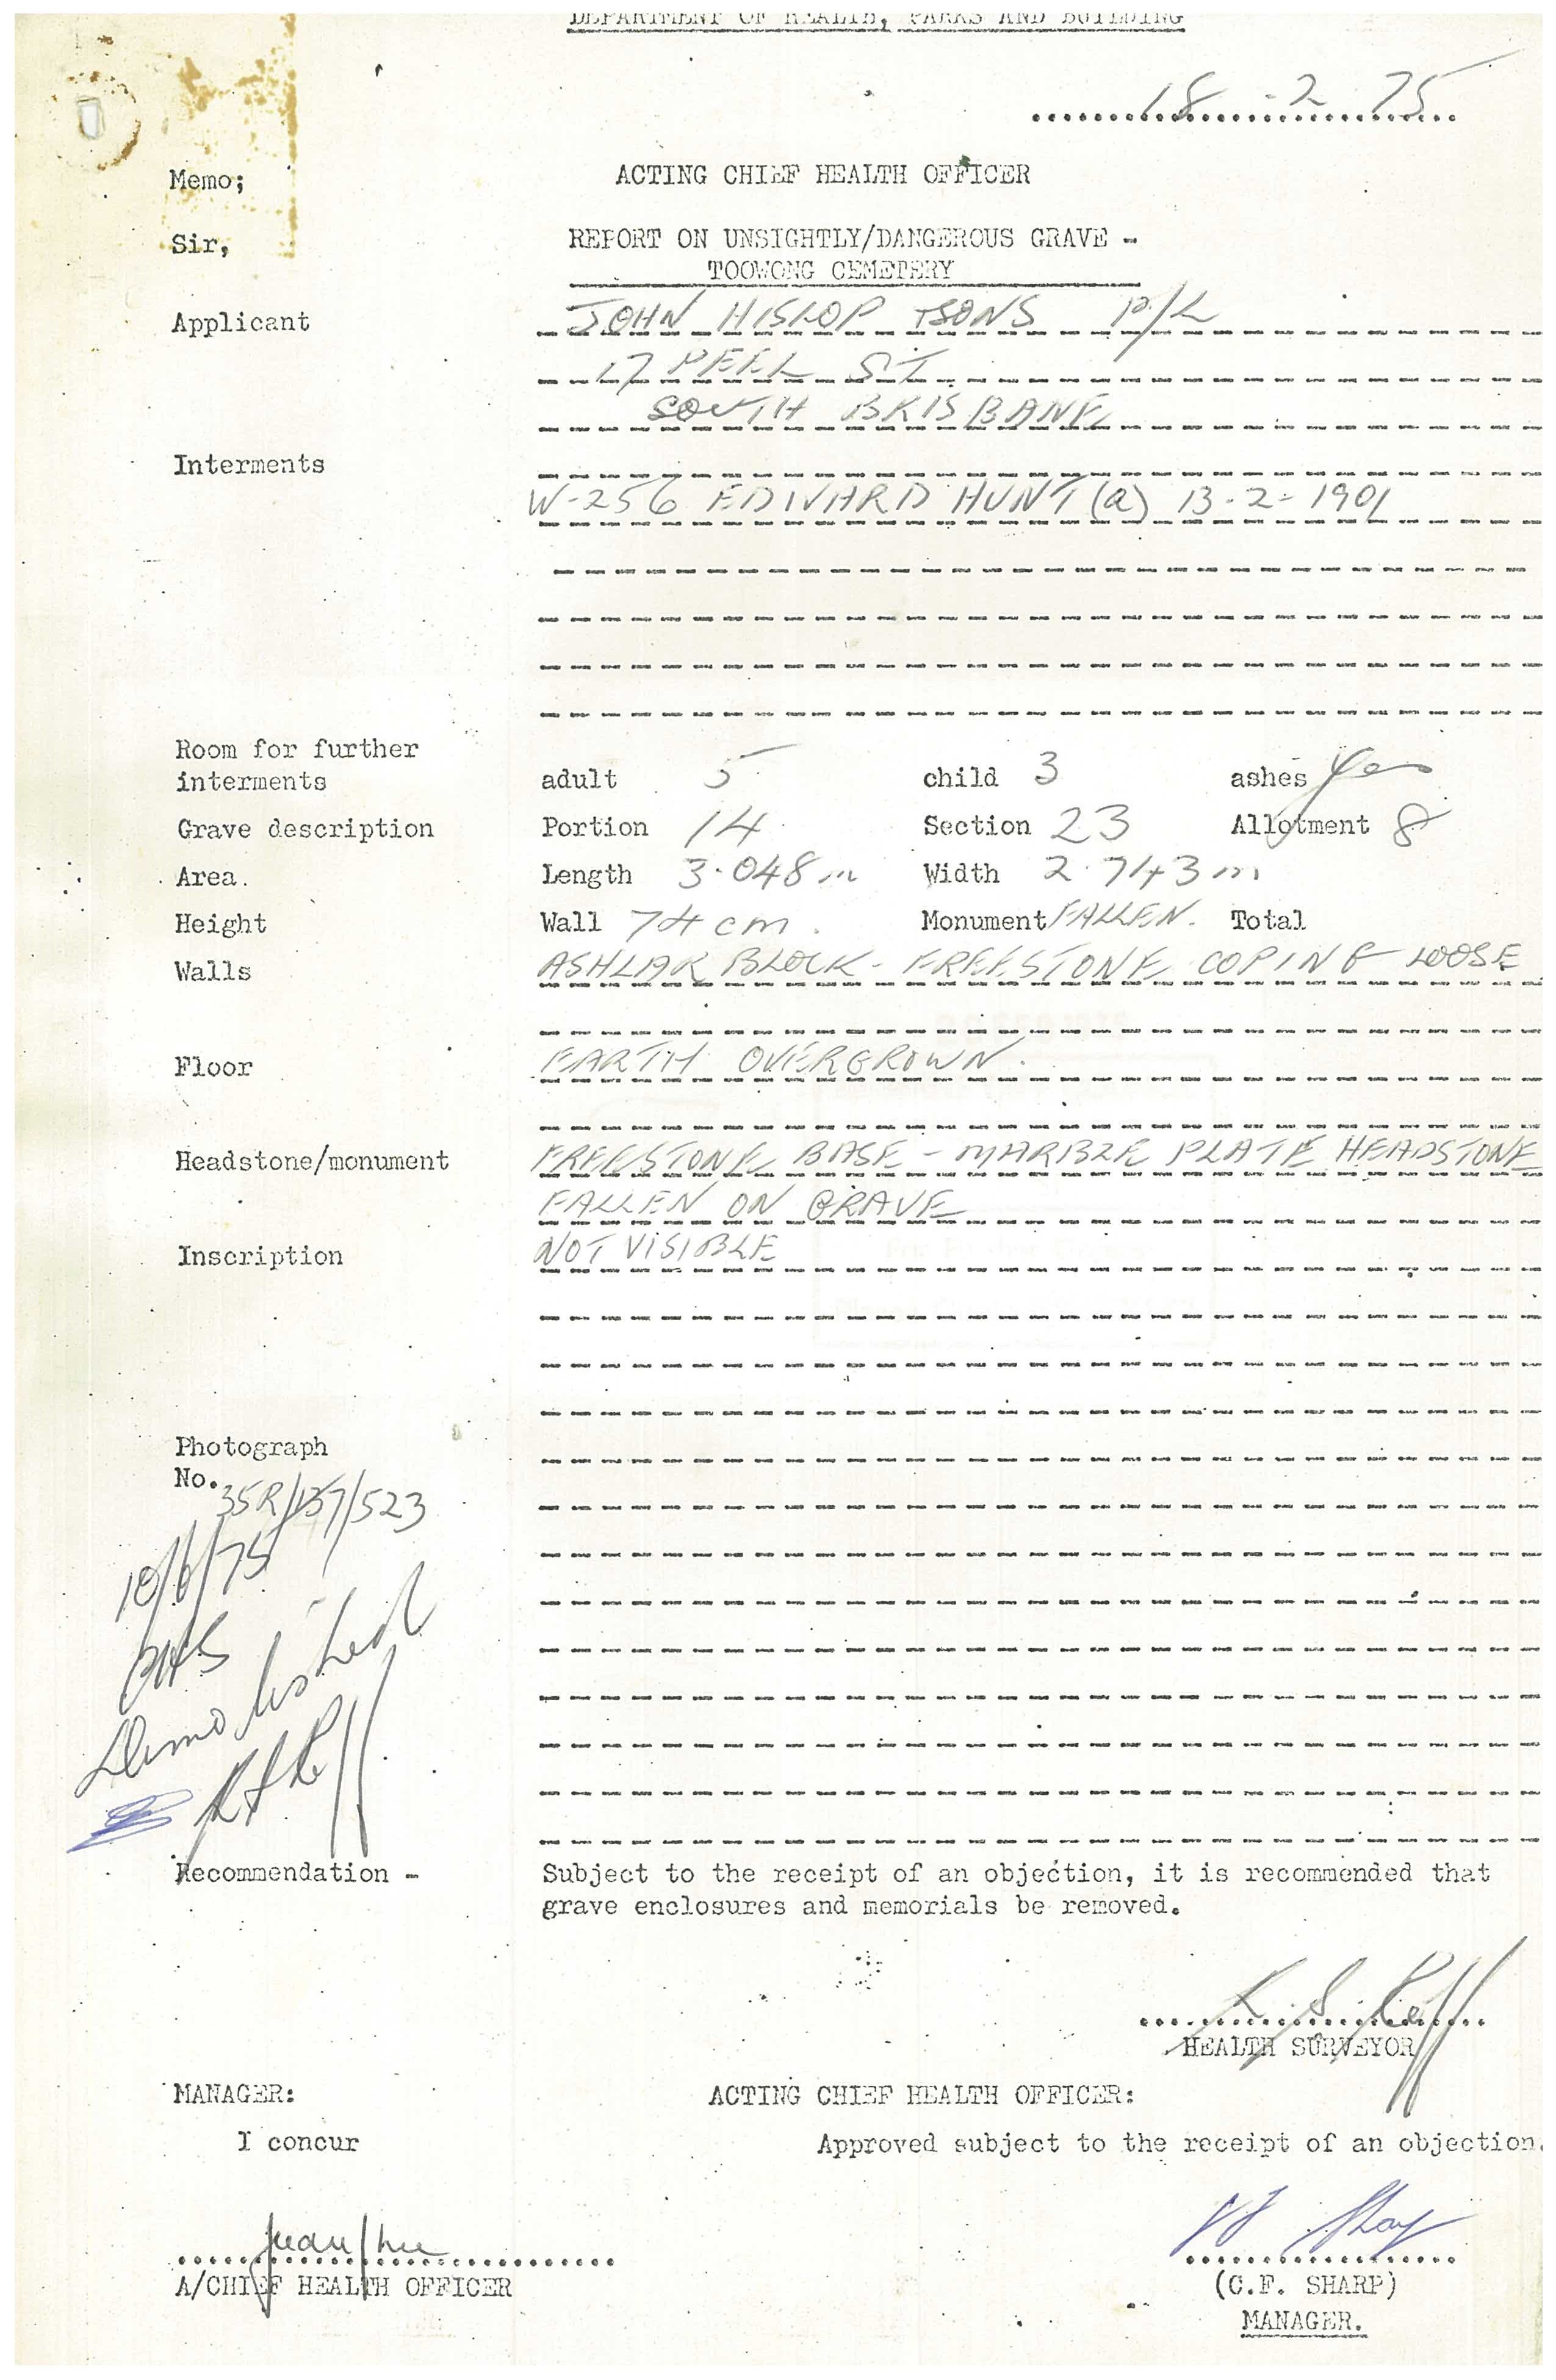 DEPARTMENT OF HEALTH, PARKS AND BUILDING
18-2-75
Memo; ACTING CHIEF HEALTH OFFICER
Sir, REPORT ON UNSIGHTLY/DANGEROUS GRAVE -
TOOWONG CEMETERY
Applicant JOHN HISLOP & SONS P/L
17 PEEL ST
SOUTH BRISBANE
Interments
W-256 EDWARD HUNT (a) 13-2-1901
Room for further
interments adult 5 child 3 ashes Yes
Grave description Portion 14 Section 23 Allotment 8
Area. Length 3.048m Width 2.743m
Height Wall 74 cm. Monument FALLEN. Total
Walls ASHLAR BLOCK - FREESTONE COPING LOOSE
Floor EARTH OVERGROWN.
Headstone/monument FREESTONE BASE - MARBLE PLATE HEADSTONE
FALLEN ON GRAVE
Inscription NOT VISIBLE
Photograph
No. 35R/137/523
10/6/75
Demolished
Recommendation - Subject to the receipt of an objection, it is recommended that
grave enclosures and memorials be removed.
HEALTH SURVEYOR
MANAGER: ACTING CHIEF HEALTH OFFICER:
I concur Approved subject to the receipt of an objection.
A/CHIEF HEALTH OFFICER (C.F. SHARP)
MANAGER.